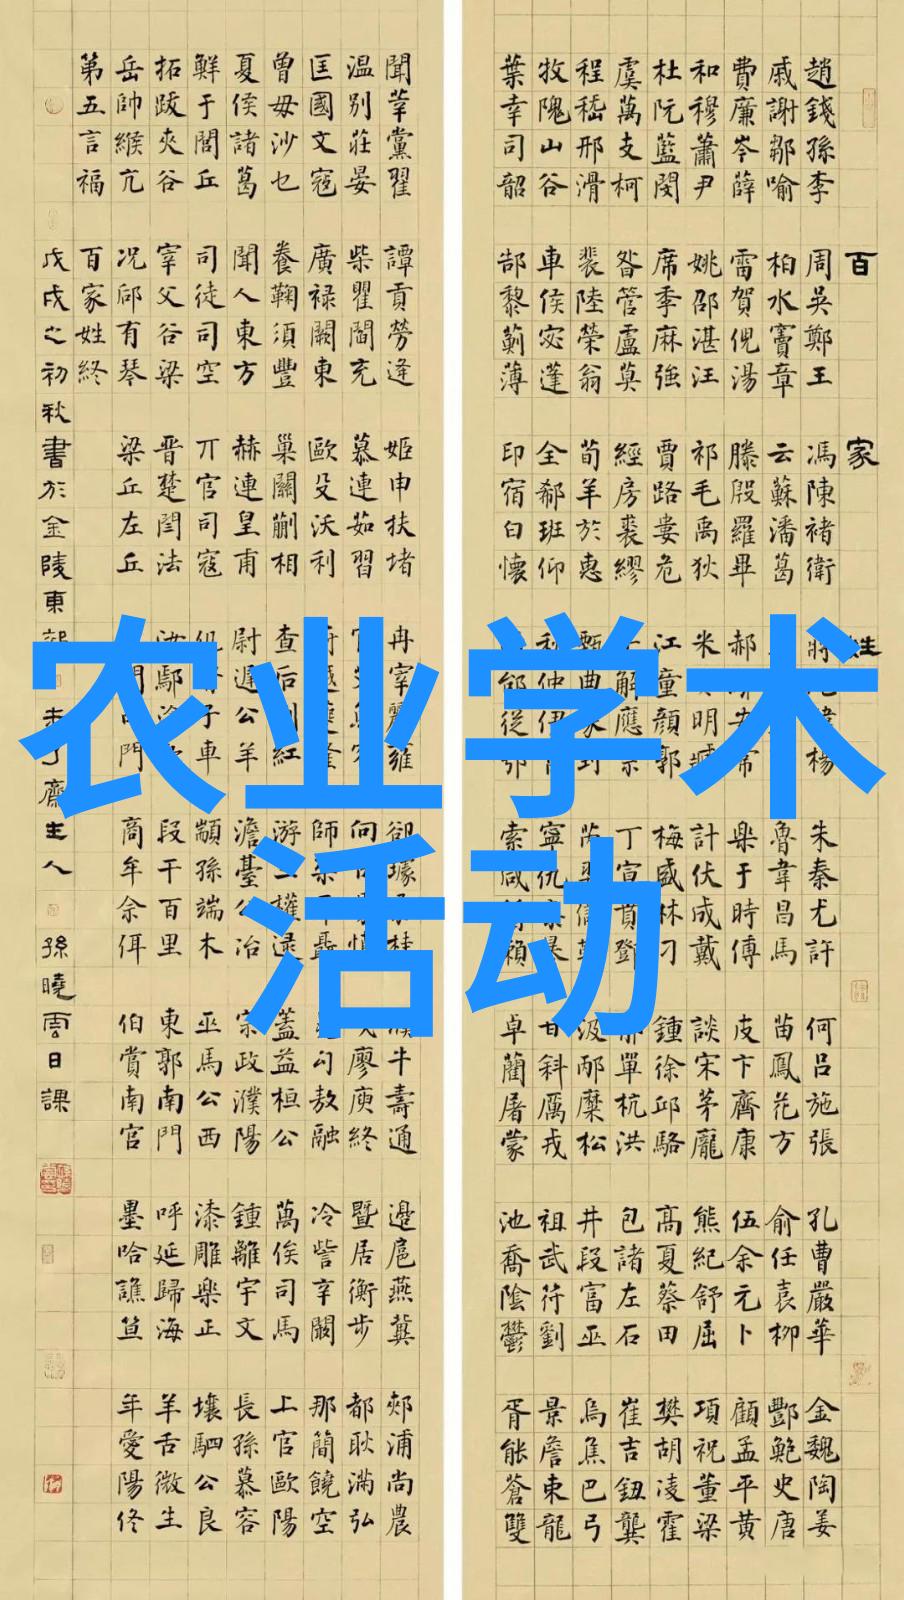 百家姓
趙錢孫李周吳鄭王馮陳褚衛楊朱秦尤許何吕施張孔曹嚴華金魏陶姜
戚謝鄒喻柏水竇章云蘇潘葛魯韋昌馬苗鳳花方俞任袁柳酆鮑史唐
費廉岑薛雷賀倪湯滕殷羅畢郝常樂于時傅皮卞齊康伍余元卜顧孟平黄
和穆蕭尹姚邵湛汪祁毛禹狄米明臧計伏成戴談宋茅龐熊紀舒屈項祝董梁
杜阮藍閔席季麻強賈路婁危江童顔郭梅盛林刁鍾徐邱駱高夏蔡田樊胡凌霍
虞萬支柯昝管盧莫經房裘繆解應宗丁宣賁鄧單杭洪包諸左石崔吉鈕龔
程嵇邢滑裴陸榮翁荀羊於惠甄曲封汲邴糜松井段富巫烏焦巴弓
牧隗山谷車侯宓蓬全郗班仰仲伊寧仇暴甘斜厲戎祖武符劉景詹束龍
葉幸司韶郜黎薊薄印宿白懷邰從鄂索咸賴卓藺屠蒙池喬陰鬱胥能蒼雙
聞莘黨翟譚貢勞逄姬申扶堵冉宰酈雍卻璩桂濮牛壽通邊扈燕冀郟浦尚農
温别莊晏柴瞿閻充慕連茹習向慎戈廖庾終暨居衡步都耿滿弘
匡國文寇廣禄闕東歐殳沃利隆師鞏聶晁勾敖融冷訾辛闞那簡饒空
曾毋沙乜養鞠須豐巢關蒯相查后荆紅游權逯蓋益桓公萬俟司馬上官歐陽
夏侯諸葛聞人東方赫連皇甫尉遲公羊澹臺公冶宗政濮陽鍾離宇文長孫慕容
鮮于閭丘司徒司空亓官司寇子車顓孫端木巫馬公西漆雕樂正壤駟公良
拓跋夾谷宰父谷梁晋楚閆法汝鄢段干百里東郭南門呼延歸海羊舌微生
岳帥緱亢况郈有琴梁丘左丘門門商牟佘佴伯賞南宫墨哈譙笪年愛陽佟
第五言福百家姓終
戊戌之初秋書於金陵東郊齋主人孫曉雲日課
农业学术
活动